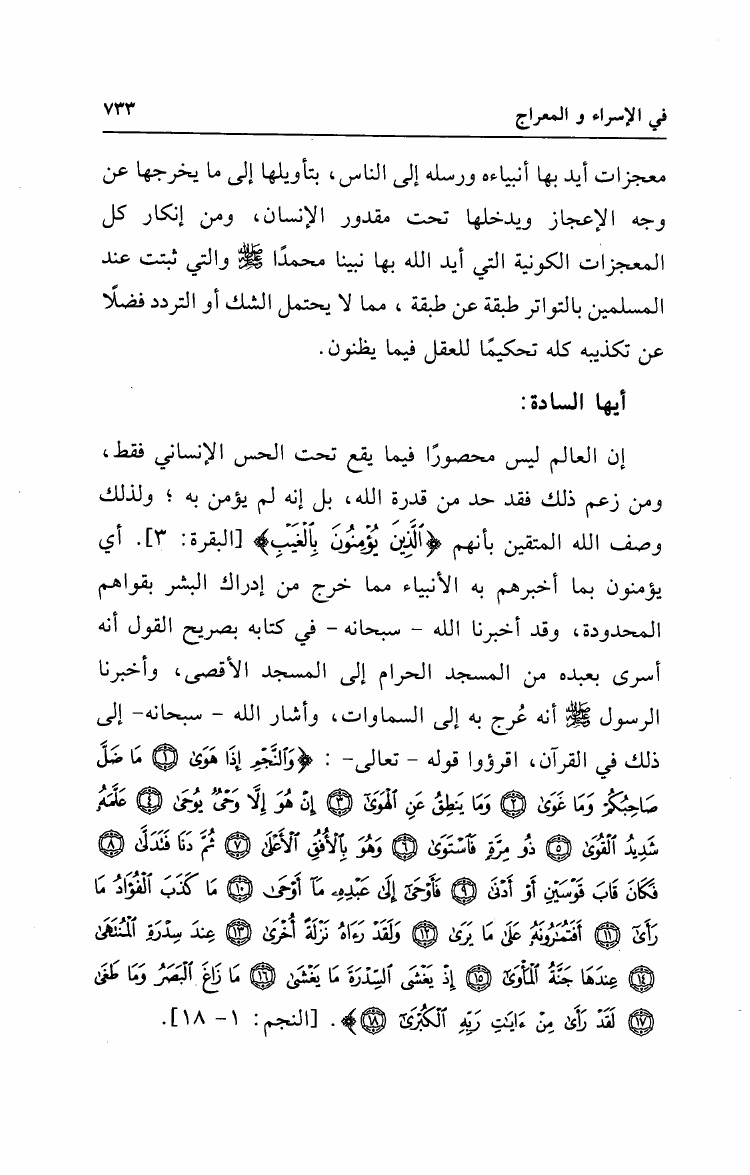 في الإسراء و المعراج ٧٣٣
معجزات أيد بها أنبياءه ورسله إلى الناس، بتأويلها إلى ما يخرجها عن
وجه الإعجاز ويدخلها تحت مقدور الإنسان، ومن إنكار كل
المعجزات الكونية التي أيد الله بها نبينا محمدًا ﷺ والتي ثبتت عند
المسلمين بالتواتر طبقة عن طبقة ، مما لا يحتمل الشك أو التردد فضلًا
عن تكذيبه كله تحكيمًا للعقل فيما يظنون.
أيها السادة:
إن العالم ليس محصورًا فيما يقع تحت الحس الإنساني فقط،
ومن زعم ذلك فقد حد من قدرة الله، بل إنه لم يؤمن به ؛ ولذلك
وصف الله المتقين بأنهم ﴿ٱلَّذِينَ يُؤْمِنُونَ بِٱلْغَيْبِ﴾ [البقرة: ٣]. أي
يؤمنون بما أخبرهم به الأنبياء مما خرج من إدراك البشر بقواهم
المحدودة، وقد أخبرنا الله - سبحانه - في كتابه بصريح القول أنه
أسرى بعبده من المسجد الحرام إلى المسجد الأقصى، وأخبرنا
الرسول ﷺ أنه عُرج به إلى السماوات، وأشار الله - سبحانه- إلى
ذلك في القرآن، اقرؤوا قوله - تعالى- : ﴿وَٱلنَّجْمِ إِذَا هَوَىٰ ۝١ مَا ضَلَّ
صَاحِبُكُمْ وَمَا غَوَىٰ ۝٢ وَمَا يَنطِقُ عَنِ ٱلْهَوَىٰٓ ۝٣ إِنْ هُوَ إِلَّا وَحْىٌ يُوحَىٰ ۝٤ عَلَّمَهُۥ
شَدِيدُ ٱلْقُوَىٰ ۝٥ ذُو مِرَّةٍ فَٱسْتَوَىٰ ۝٦ وَهُوَ بِٱلْأُفُقِ ٱلْأَعْلَىٰ ۝٧ ثُمَّ دَنَا فَتَدَلَّىٰ ۝٨
فَكَانَ قَابَ قَوْسَيْنِ أَوْ أَدْنَىٰ ۝٩ فَأَوْحَىٰٓ إِلَىٰ عَبْدِهِۦ مَآ أَوْحَىٰ ۝١٠ مَا كَذَبَ ٱلْفُؤَادُ مَا
رَأَىٰٓ ۝١١ أَفَتُمَٰرُونَهُۥ عَلَىٰ مَا يَرَىٰ ۝١٢ وَلَقَدْ رَءَاهُ نَزْلَةً أُخْرَىٰ ۝١٣ عِندَ سِدْرَةِ ٱلْمُنتَهَىٰ
۝١٤ عِندَهَا جَنَّةُ ٱلْمَأْوَىٰٓ ۝١٥ إِذْ يَغْشَى ٱلسِّدْرَةَ مَا يَغْشَىٰ ۝١٦ مَا زَاغَ ٱلْبَصَرُ وَمَا طَغَىٰ
۝١٧ لَقَدْ رَأَىٰ مِنْ ءَايَٰتِ رَبِّهِ ٱلْكُبْرَىٰٓ ۝١٨﴾. [النجم: ١- ١٨].